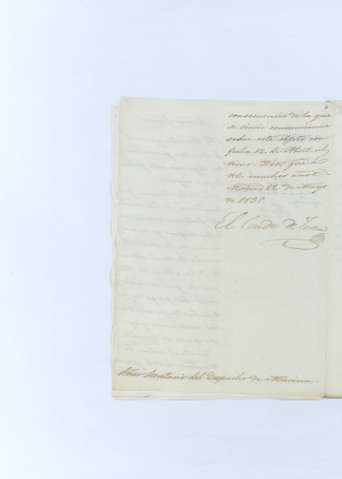 consecuencia de lo que
se sirvió comunicarme
sobre este objeto con
fecha 12 de Abril
Dios gue. a
V.E. muchos años.
Madrid 22 de Mayo
de 1835.
El Conde de
Señor Secretario del Despacho de Marina.